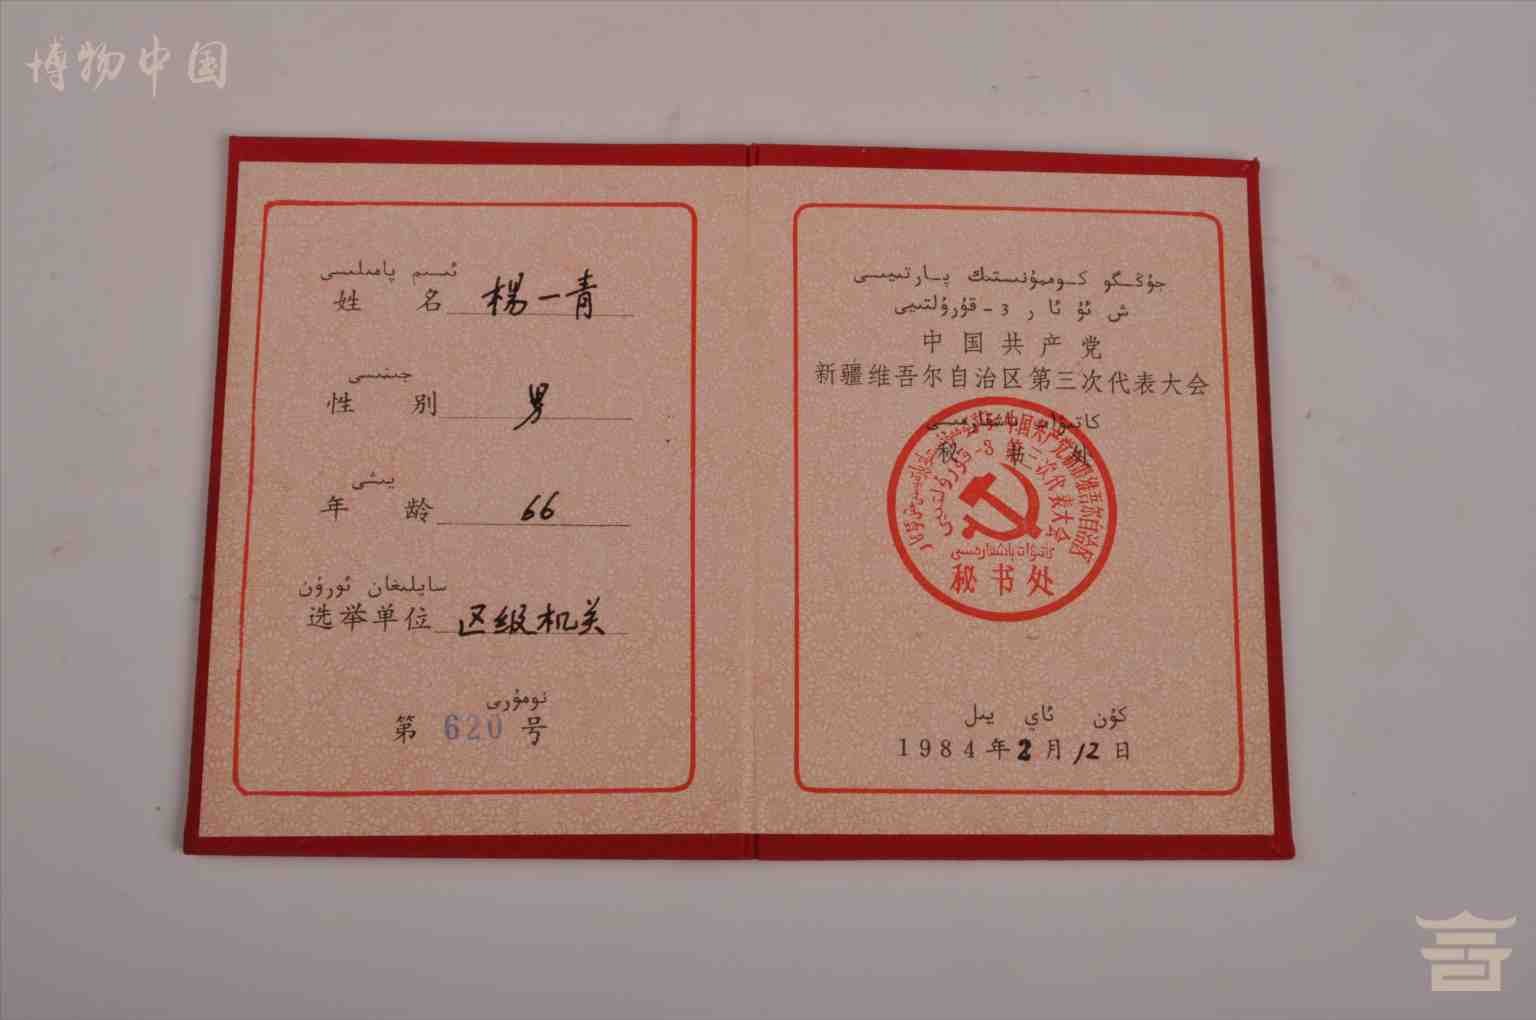 博物中国
ئىسىم پامىلىسى
姓 名 楊一青
جىنىسى
性 别 男
يېشى
年 龄 66
سايلىغان ئورۇن
选举单位 区级机关
نومۇرى
第 620 号
جۇڭگو كوممۇنىستىك پارتىيىسى
ش ئۇ ئا ر 3 - قۇرۇلتىيى
中国共产党
新疆维吾尔自治区第三次代表大会
كاتىۋات باشقارمىسى
秘 书 处
中国共产党新疆维吾尔自治区
第三次代表大会
3 - قۇرۇلتىيى
كاتىۋات باشقارمىسى
秘书处
كۈن ئاي يىل
1984年2月12日